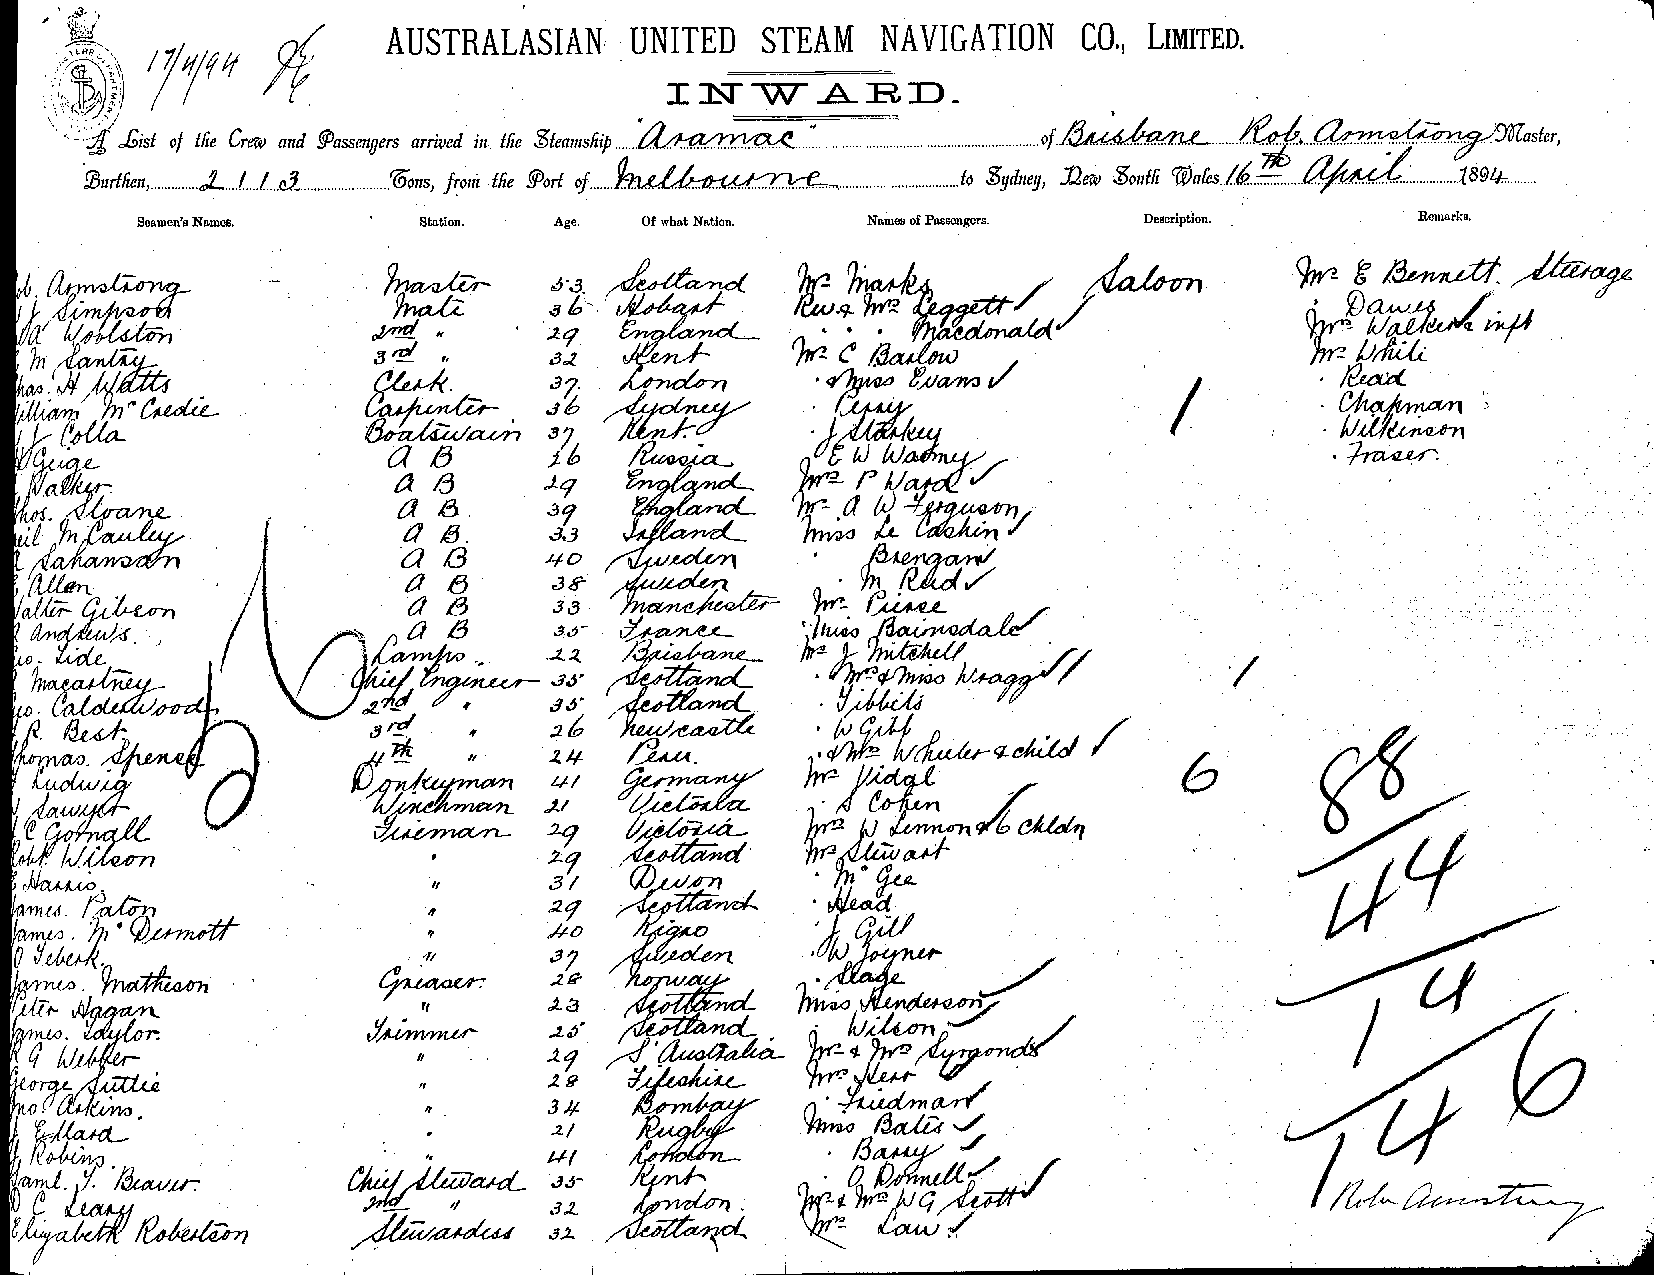 17/4/94
AUSTRALASIAN UNITED STEAM NAVIGATION CO., LIMITED.
INWARD.
A List of the Crew and Passengers arrived in the Steamship "Aramac" of Brisbane Rob. Armstrong Master,
Burthen, 2113 Tons, from the Port of Melbourne to Sydney, New South Wales 16th April 1894
Seamen's Names. Station. Age. Of what Nation. Names of Passengers. Description. Remarks.
ob. Armstrong Master 53 Scotland Mr Marks Saloon Mr E Bennett. Steerage
J Simpson Mate 36 Hobart Rev & Mrs Leggett " Dawes
A Woolston 2nd " 29 England " " " Macdonald Mrs Walker & inft
M Santry 3rd " 32 Kent Mr C Barlow Mr White
has. H Watts Clerk. 37. London " & Miss Evans " Read
illiam McCredie Carpenter 36 Sydney " Perry 1 " Chapman
J Colla Boatswain 37 Kent. " J Starkey " Wilkinson
Geige A B 26 Russia " E W " Fraser.
Walker A B 29 England Mrs P Ward
hos. Sloane A B. 39 England Mr A W Ferguson
eil McCauley A B. 33 Ireland Miss Le Cashin
Sahanson A B 40 Sweden " Brengan
Allen A B 38 Sweden " M Reid
alter Gibson A B 33 Manchester Mr Pierse
Andrews. A B 35 France Miss Bairnsdale
Side Lamps. 22 Brisbane Mr J Mitchell
Macartney Chief Engineer 35 Scotland " Mrs & Miss Wragge 1
Calderwood 2nd " 35 Scotland " Tibbits
R. Best 3rd " 26 Newcastle " W Gibb
homas. Spence 4th " 24 Peru. " & Mrs Wheeler & child
Ludwig Donkeyman 41 Germany Mr Vidal 6
Sawyer Winchman 21 Victoria " S Cohen 88
C Gornall Fireman 29 Victoria Mrs W Lennon & 6 chldn
obt. Wilson " 29 Scotland Mr Stewart
Harris. " 31 Devon " McGee 44
ames. Paton " 29 Scotland " Head
ames. McDermott " 40 " J Gill
O Teberk. " 37 Sweden " W Joyner
ames. Matheson Greaser. 28 Norway " Slage 14
eter Hagan " 23 Scotland Miss Henderson
ames. Taylor. Trimmer 25 Scotland " Wilson
G Webber " 29 S. Australia Mr & Mrs Syrgonds
George Suttie " 28 Fifeshire Mrs Kerr 6
no. Arkins. " 34 Bombay " Friedman
Ellard " 21 Rugby Miss Bates 14
Robins. " 41 London " Barry
aml. T. Beaver. Chief Steward 35 Kent " O Donnell
C Leary 2nd " 32 London. Mr & Mrs W G Scott
Elizabeth Robertson Stewardess 32 Scotland Mrs Law
Robt Armstrong